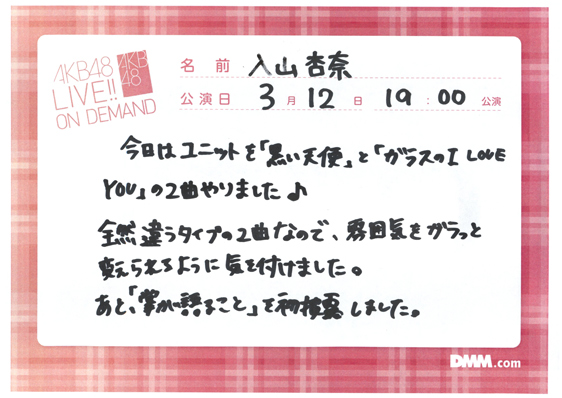 AKB48
LIVE!!
ON DEMAND
AKB
48
名前 入山杏奈
公演日 3月12日 19:00 公演
今日はユニットを「黒い天使」と「ガラスのI LOVE
YOU」の2曲やりました♪
全然違うタイプの2曲なので、雰囲気をガラっと
変えられるように気を付けました。
あと、「掌が語ること」を初披露しました。
DMM.com